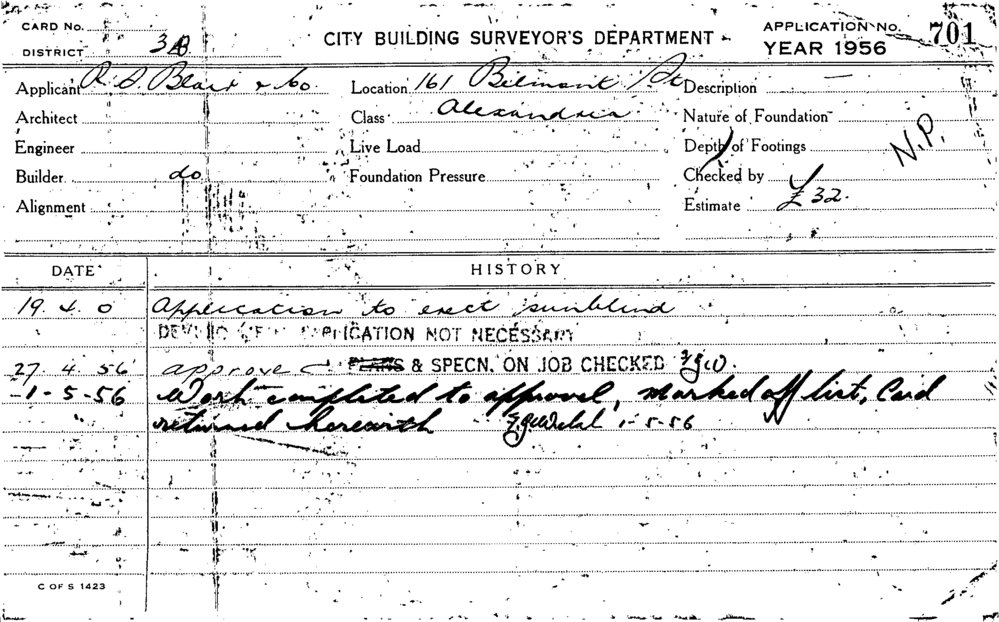 CARD No.
DISTRICT 3B
CITY BUILDING SURVEYOR'S DEPARTMENT
APPLICATION No. 701
YEAR 1956
Applicant R. D. Blair & Co. Location 161 Belmont St Description —
Architect Class Alexandria Nature of Foundation
Engineer Live Load Depth of Footings
N.P.
Builder do Foundation Pressure Checked by
Alignment Estimate £32.
DATE HISTORY
19. 4. 0 Application to erect sunblind
APPLICATION NOT NECESSARY
27. 4. 56 approved PLANS & SPECN. ON JOB CHECKED
-1-5-56 Work completed to approval, marked off list, Card
returned herewith 1-5-56
C OF S 1423